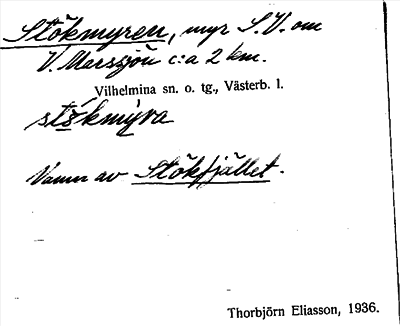 Stökmyren, myr S.V. om
V. Marssjön c:a 2 km.
Vilhelmina sn. o. tg., Västerb. l.
stökmýra
Namn av Stökfjället.
Thorbjörn Eliasson, 1936.